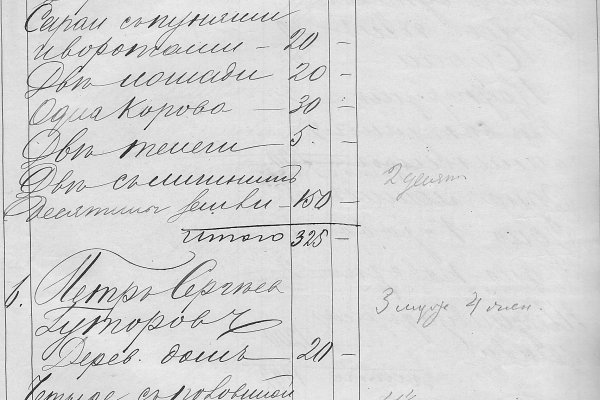 Сараи съ пунями
и воротами - 20 -
Двѣ лошади 20 -
Одна корова - 30 -
Двѣ телеги 5. -
Двѣ съ
Десятины земли - 150 - 2 десят
Итого 325 -
6. Петръ Сергѣев
Гуторовъ 3 муж 4 жен.
Дерев. домъ - 20 -
Четыре съ половиной